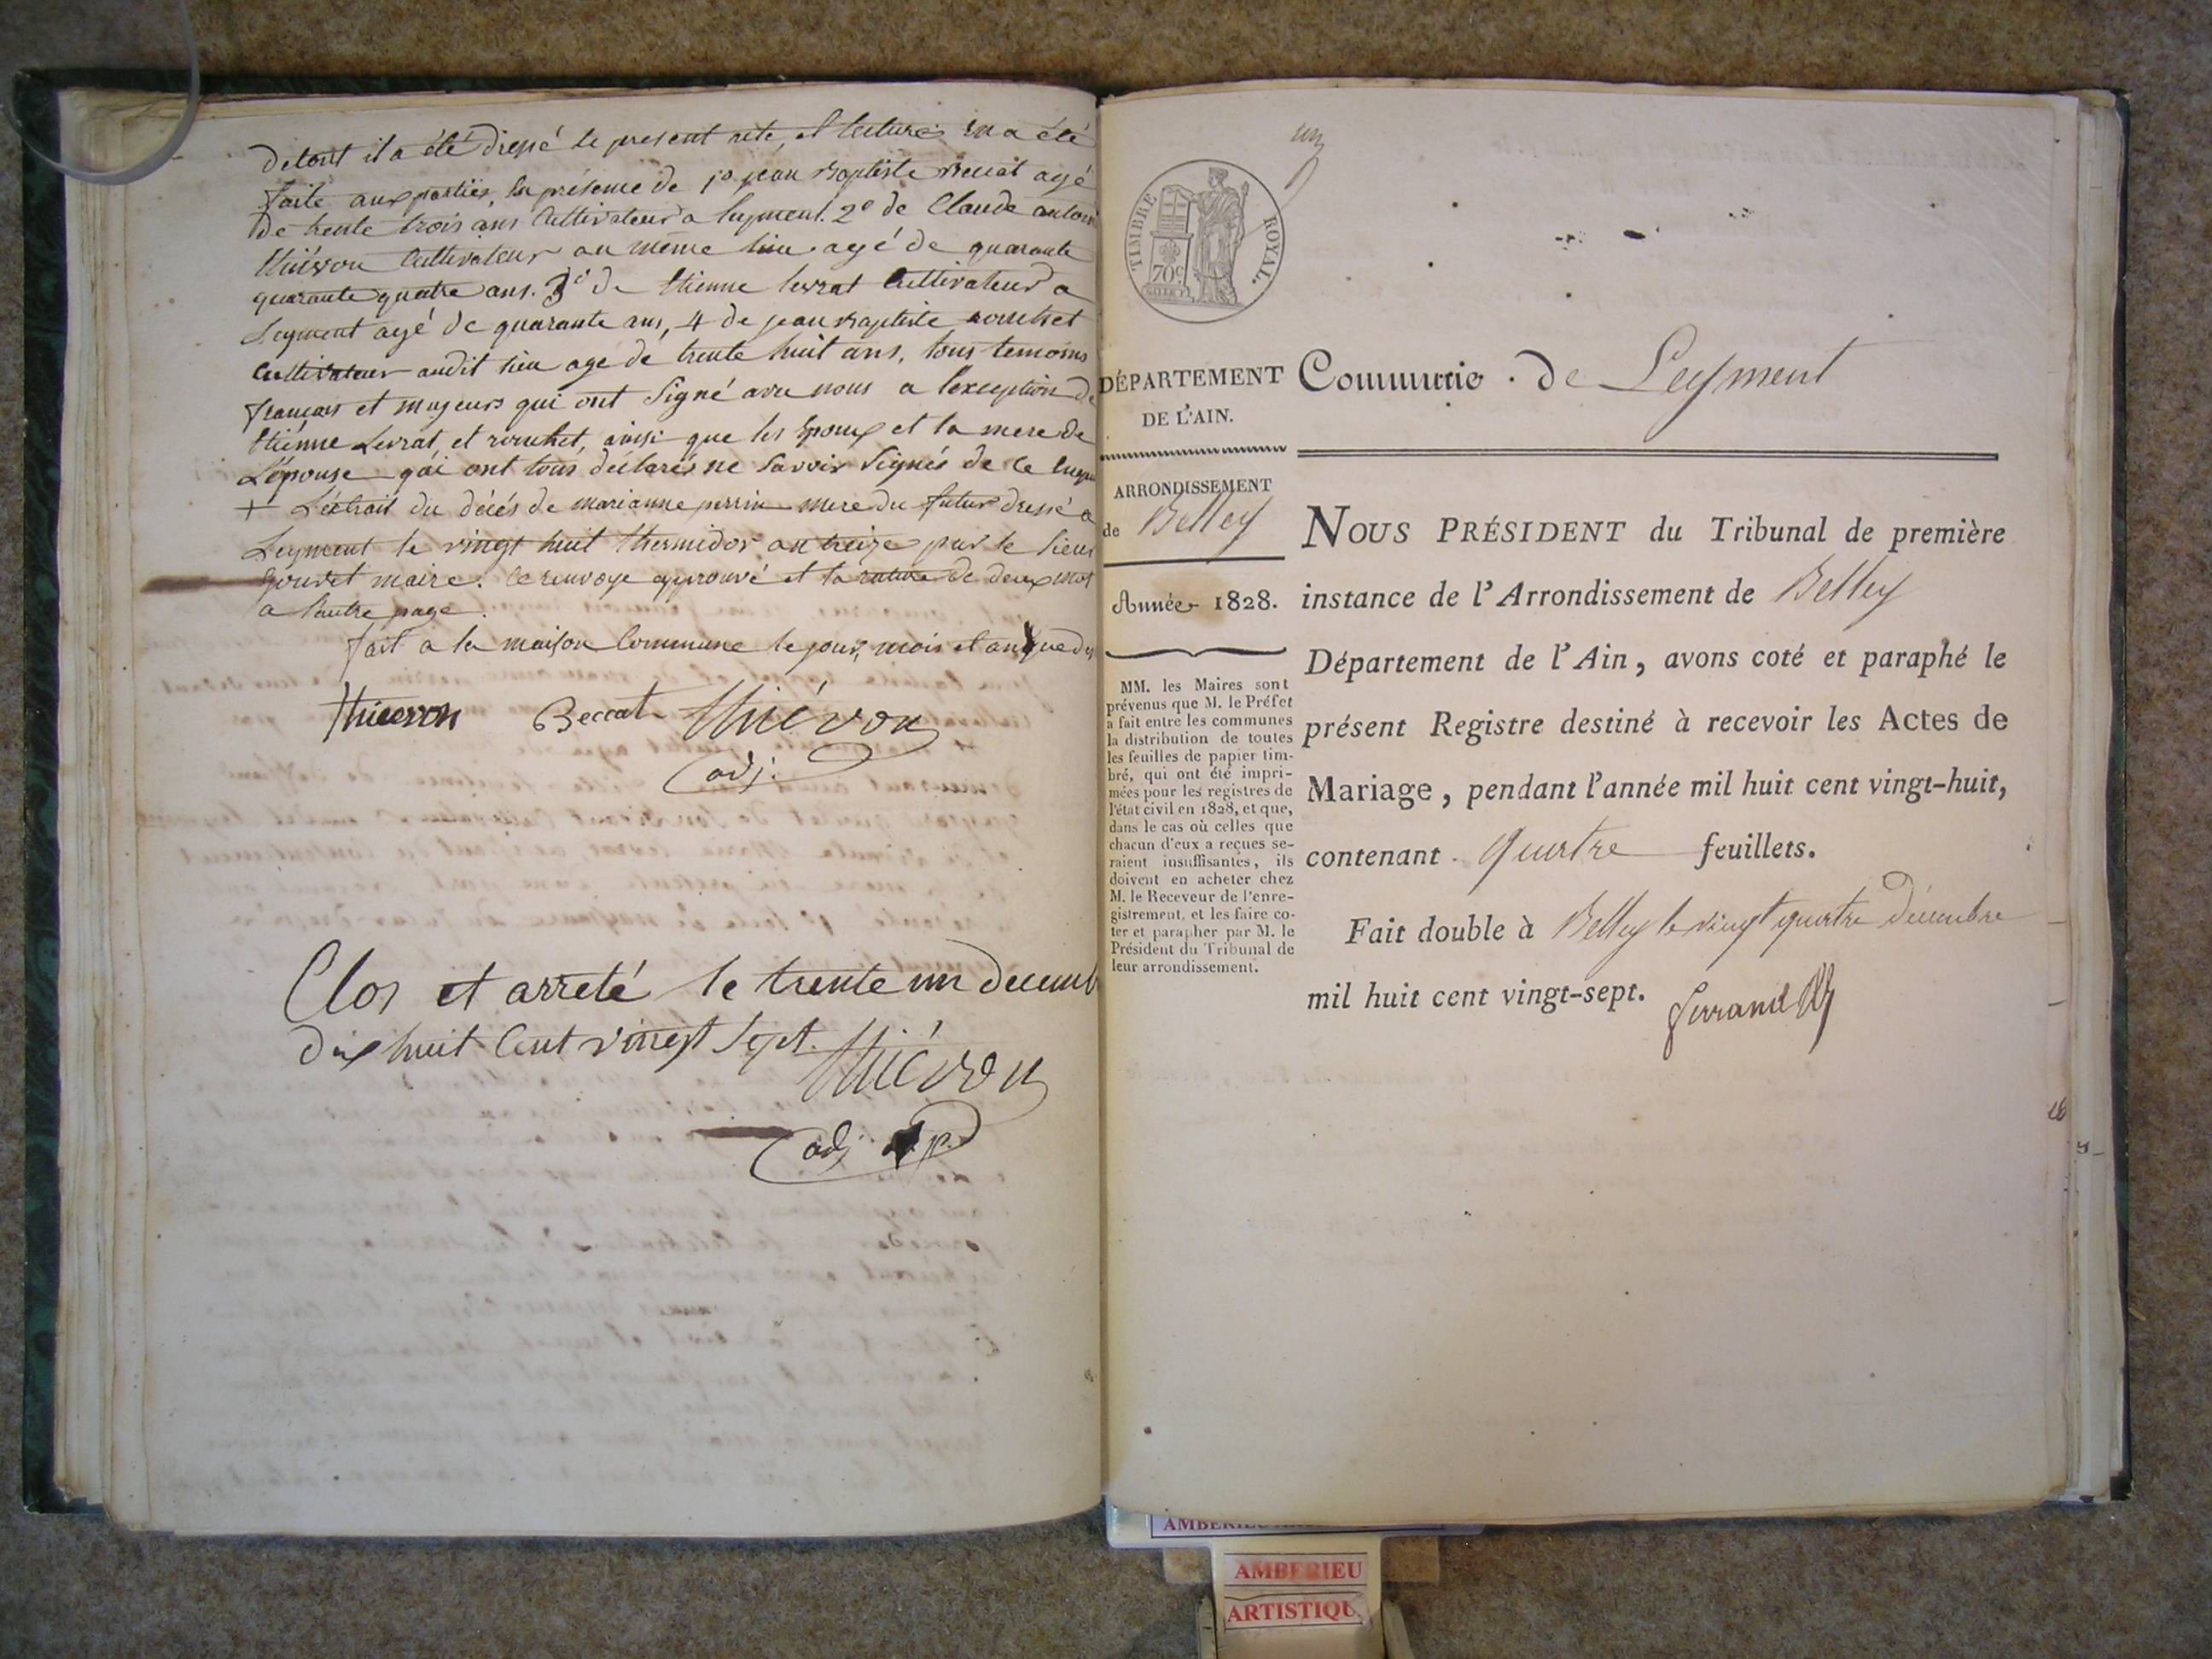 detout il a été dressé le present acte, et lecture en a été
faite aux parties, en présence de 1o jean Baptiste Beccat agé
de trente trois ans Cultivateur a leyment. 2o de Claude antoine
thiévon Cultivateur au même lieu agé de quarante
quarante quatre ans. 3o de Etienne levrat Cultivateur a
Leyment agé de quarante ans, 4 de jean Baptiste
Cultivateur audit lieu age de trente huit ans, tous temoins
francais et majeurs qui ont signé avec nous a l'exception de
Etienne Levrat, et ainsi que les Epoux et la mere de
L'épouse qui ont tous déclarés ne savoir signés de ce
+ L'extrait du décés de marianne perrin mere du futur dressé a
Leyment le vingt huit thermidor an treize par le sieur
maire. Ce renvoye approuvé et la rature de deux mot
a l'autre page.
fait a la maison Commune le jour, mois et an que
Thievon Beccat Thiévon
adj.
Clos et arreté le trente un decemb
dix huit Cent vingt sept. Thiévon
adj.
un
TIMBRE ROYAL.
70c
DÉPARTEMENT
DE L'AIN.
Commune de Leyment
ARRONDISSEMENT
de Belley
Année 1828.
MM. les Maires sont
prévenus que M. le Préfet
a fait entre les communes
la distribution de toutes
les feuilles de papier tim-
bré, qui ont été impri-
mées pour les registres de
l'état civil en 1828, et que,
dans le cas où celles que
chacun d'eux a reçues se-
raient insuffisantes, ils
doivent en acheter chez
M. le Receveur de l'enre-
gistrement, et les faire co-
ter et parapher par M. le
Président du Tribunal de
leur arrondissement.
NOUS PRÉSIDENT du Tribunal de première
instance de l'Arrondissement de Belley
Département de l'Ain, avons coté et paraphé le
présent Registre destiné à recevoir les Actes de
Mariage, pendant l'année mil huit cent vingt-huit,
contenant quatre feuillets.
Fait double à Belley le vingt quatre décembre
mil huit cent vingt-sept. Ferrand
AMBERIEU
ARTISTIQU